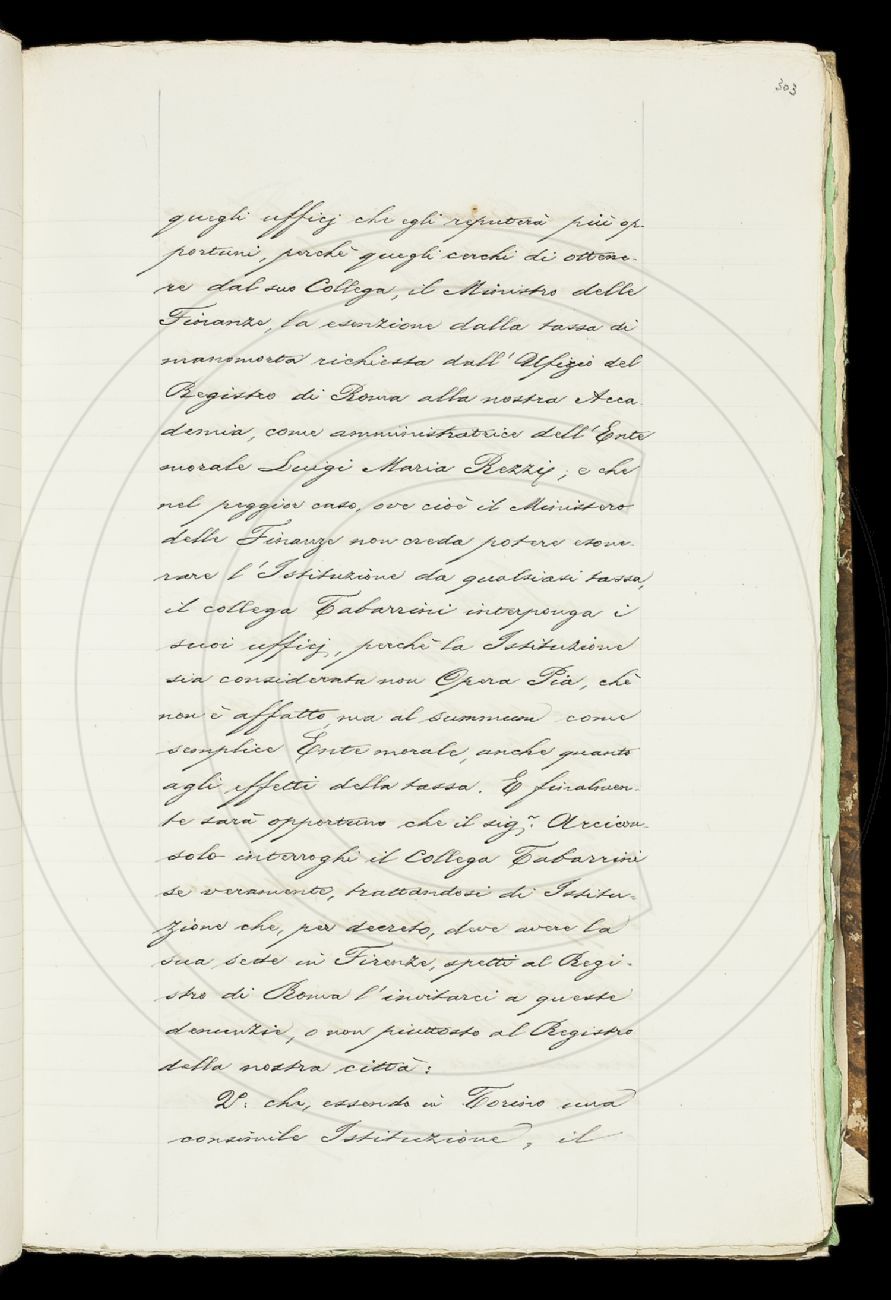 303
quegli ufficj che egli reputerà più op-
portuni, perchè quegli cerchi di ottene-
re dal suo Collega, il Ministro delle
Finanze, la esenzione dalla tassa di
manomorta richiesta dall'Ufizio del
Registro di Roma alla nostra Acca-
demia, come amministratrice dell'Ente
morale Luigi Maria Rezzi; e che
nel peggior caso, ove cioè il Ministero
delle Finanze non creda potere esone-
rare l'Istituzione da qualsiasi tassa,
il collega Tabarrini interponga i
suoi ufficj, perchè la Istituzione
sia considerata non Opera Pia, chè
non è affatto, ma al summum come
semplice Ente morale, anche quanto
agli effetti della tassa. E finalmen-
te sarà opportuno che il sigr. Arcicon-
solo interroghi il Collega Tabarrini
se veramente, trattandosi di Istitu-
zione che, per decreto, deve avere la
sua sede in Firenze, spetti al Regi-
stro di Roma l'invitarci a queste
denunzie, o non piuttosto al Registro
della nostra città:
2o: che, essendo in Torino una
consimile Istituzione, il